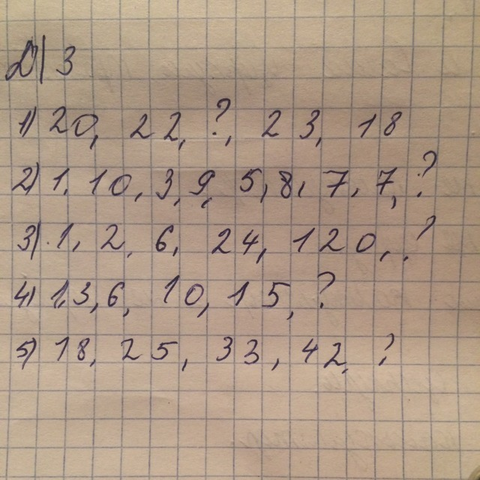 Д/З
1) 20, 22, ?, 23, 18
2) 1, 10, 3, 9, 5, 8, 7, 7, ?
3) 1, 2, 6, 24, 120, ?
4) 1,3,6, 10, 15, ?
5) 18, 25, 33, 42, ?